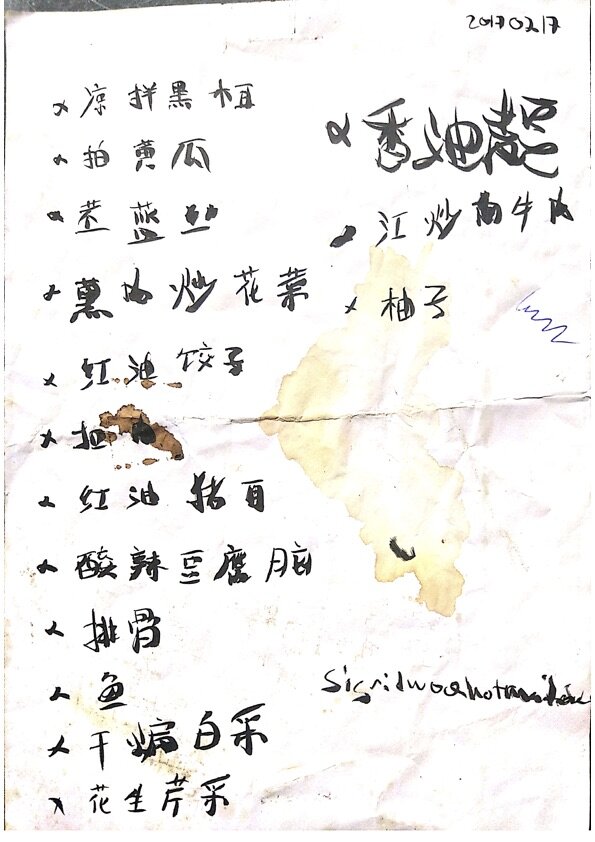 20170217
凉拌黑木耳
拍黄瓜
苤蓝丝
薰肉炒花菜
红油饺子
扣
红油猪耳
酸辣豆腐脑
排骨
鱼
干煸白采
花生芹采
香油
江炒牛肉
柚子